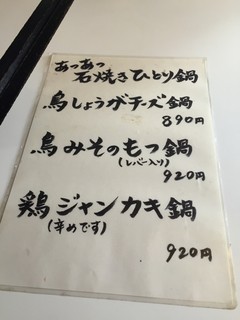 あつあつ
石焼きひとり鍋
鳥しょうがチーズ鍋
890円
鳥みそのもつ鍋
(レバー入り)
920円
鶏ジャンカキ鍋
(辛めです)
920円